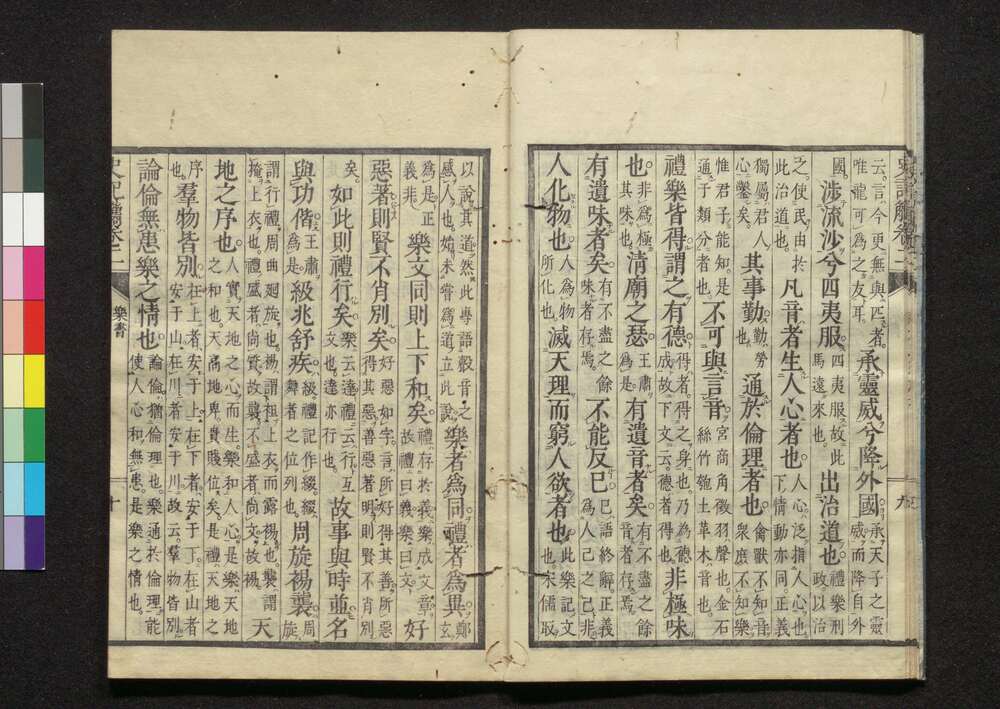 云言今更無與匹者唯龍可為之友耳承靈威兮降外國承天子之靈威而降自外
國涉流沙兮四夷服四夷服故此馬遠來也出治道也禮樂刑政以治
之使民由於此治道也凡音者生人心者也人心泛指人心也下情動亦同正義
獨屬君人心鑿矣其事勤勤勞也通於倫理者也禽獸不知音衆庶不知樂
惟君子能知是通于類分者也不可與言音宮商角徵羽聲也金石絲竹匏土革木音也
禮樂皆得謂之有德得者得之身也乃為德成故下文云德者得也非極味
也非為極其味也清廟之瑟王肅為是有遺音者矣有不盡之餘音者存焉
有遺味者矣有不盡之餘味者存焉不能反已已語終辭正義為人己之己非
人化物也人為物所化也滅天理而窮人欲者也此樂記文也宋儒取
以說其道然此專語聲音之感人也始未嘗為道立此說樂者為同禮者為異鄭玄
為是正義非樂文同則上下和矣禮存於義樂成文章故禮曰義樂曰文好
惡著則賢不肖別矣好惡如字言所好得其善所惡得其惡善惡著明則賢不肖別
矣如此則禮行矣樂云達禮云行互文也達亦行也故事與時並名
與功偕王肅為是級兆舒疾級禮記作綴綴舞者之位列也周旋裼襲周旋
謂行禮周曲廻旋也裼謂袒上衣而露裼也襲謂掩上衣也禮盛者尚質故襲不盛者尚文故裼天
地之序也人實天地之心而生樂和人心是樂天地之和也天高地卑貴賤位矣是禮天地之
序也羣物皆別在上者安于上在下者安于下在山者安于山在川者安于川故云羣物皆別
論倫無患樂之情也論倫猶倫理也樂通於倫理能使人心和無患是樂之情也
樂書
十